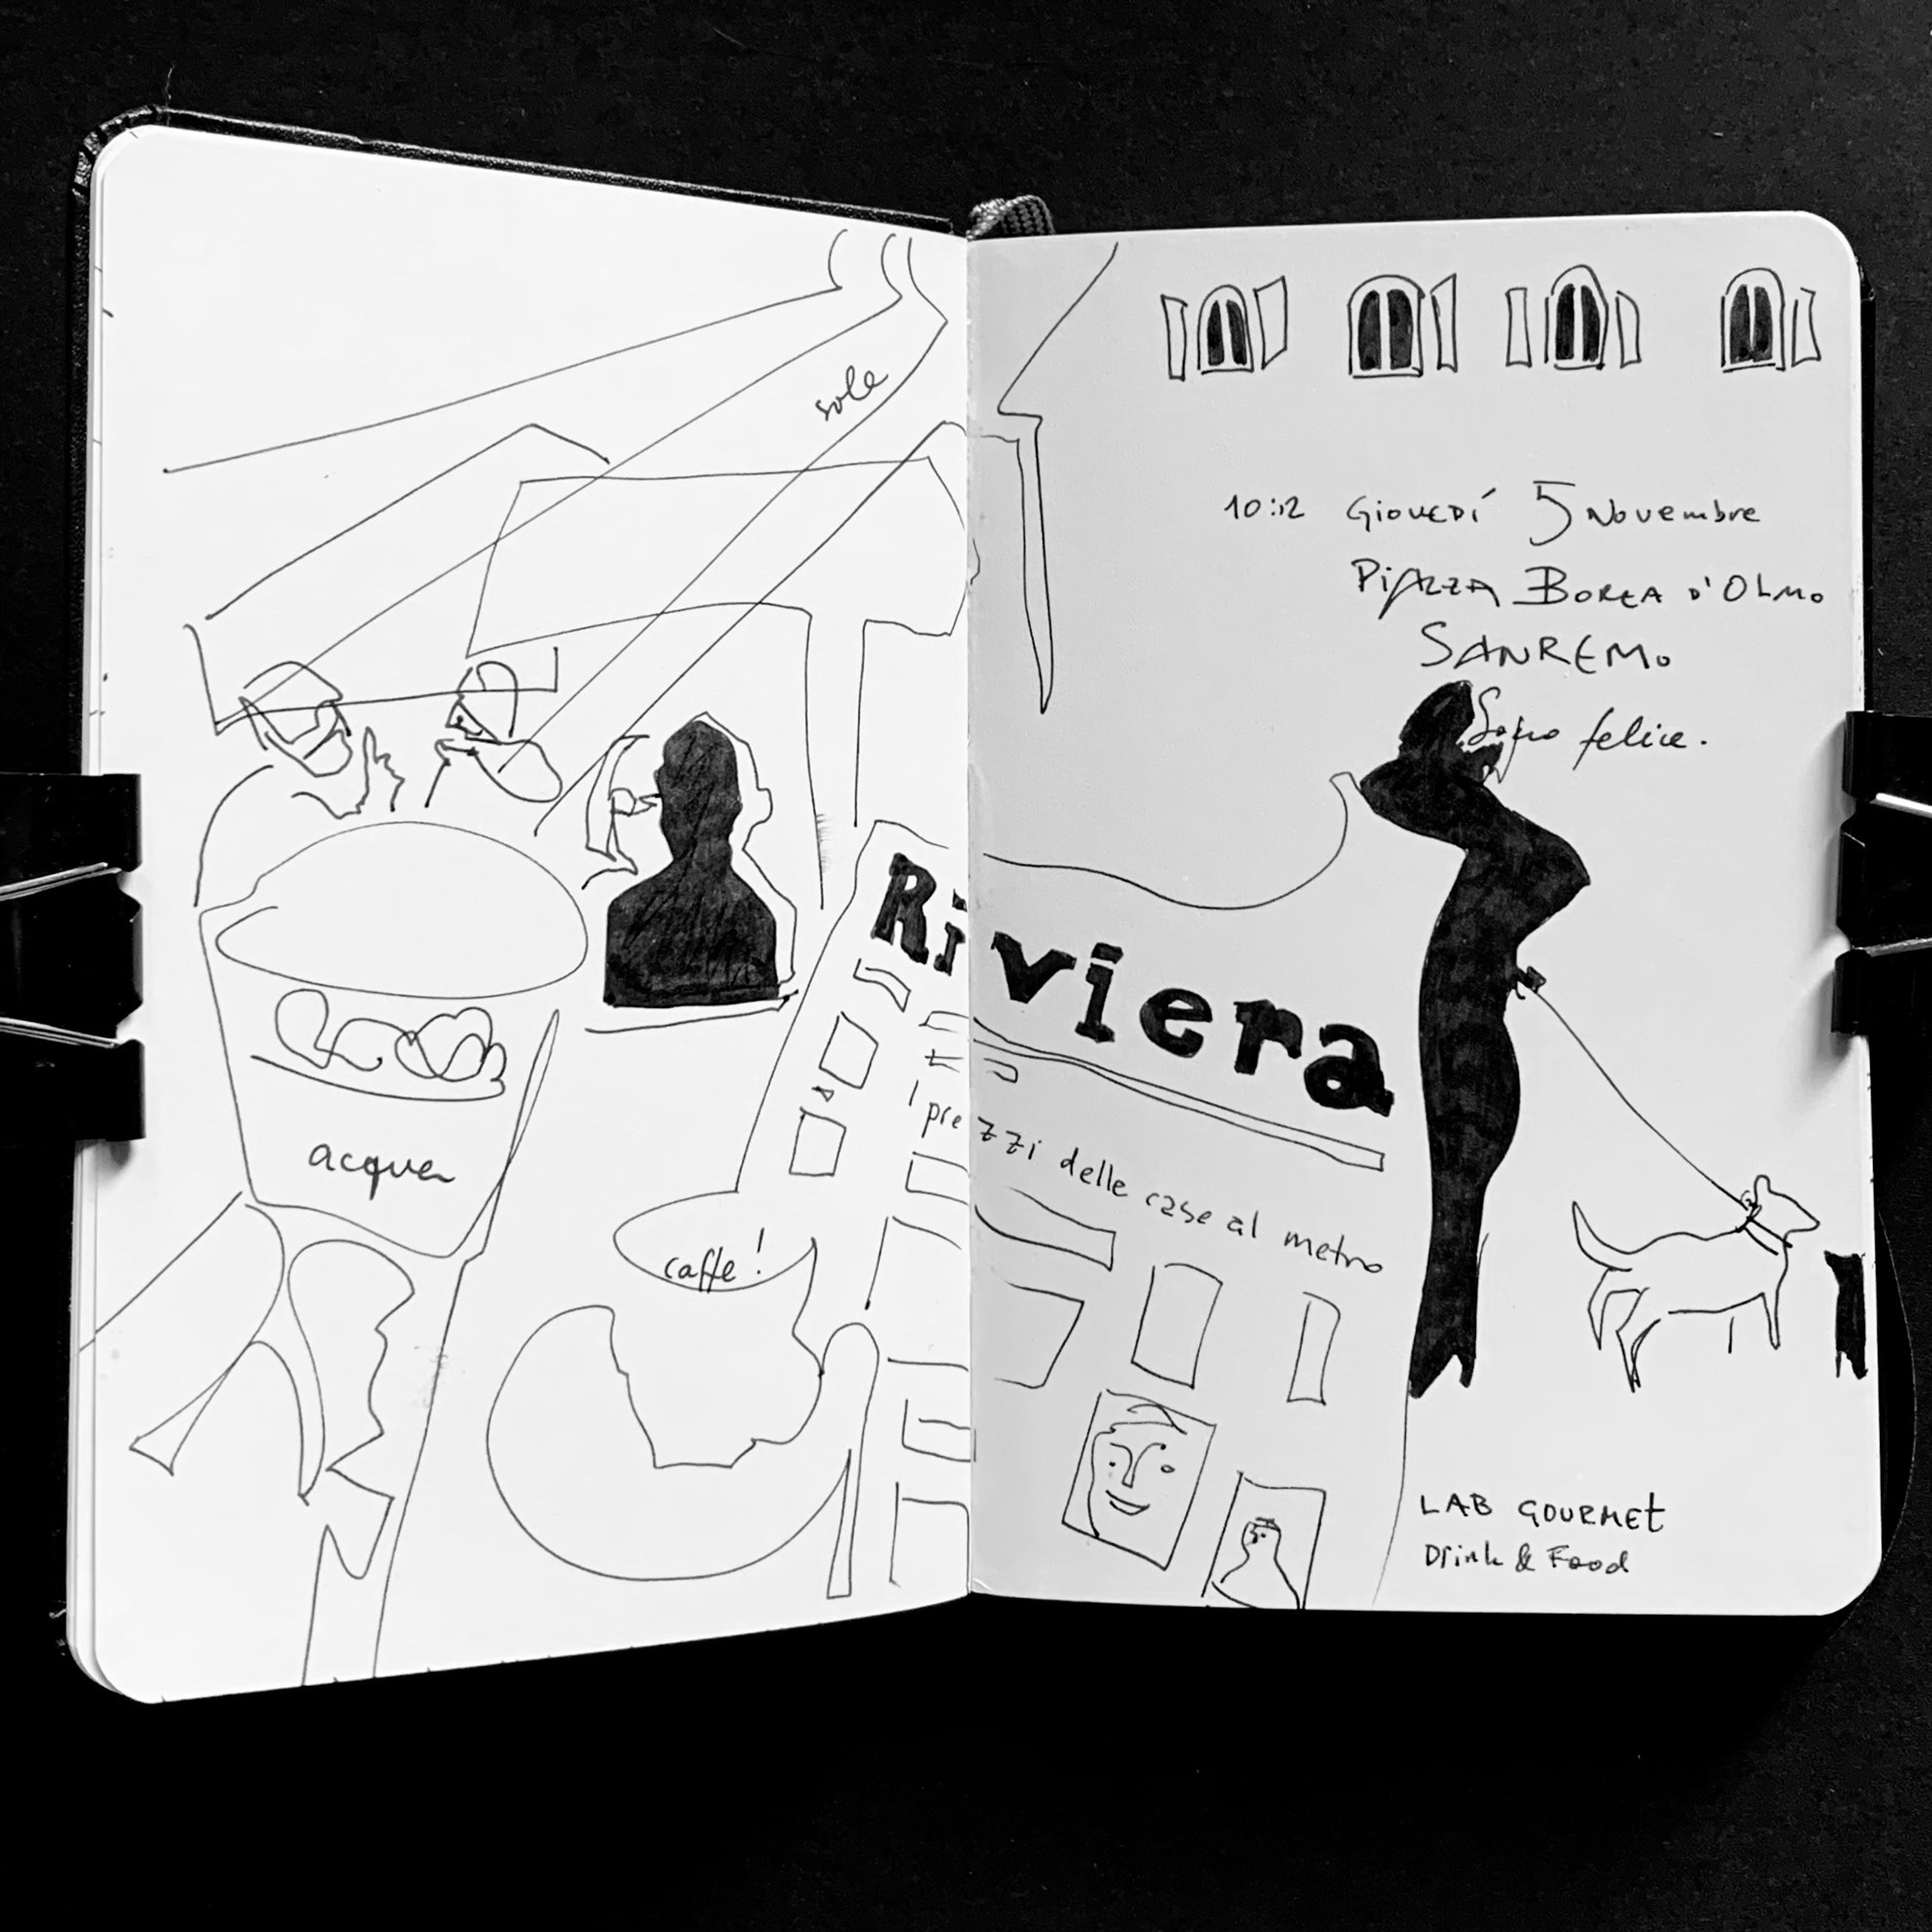 sole
10:12 Giovedí 5 Novembre
PiAZZA BOREA D'OLMO
SANREMO
Sono felice.
Riviera
I prezzi delle case al metro
acqua
caffe!
LAB GOURMEt
Drink & Food